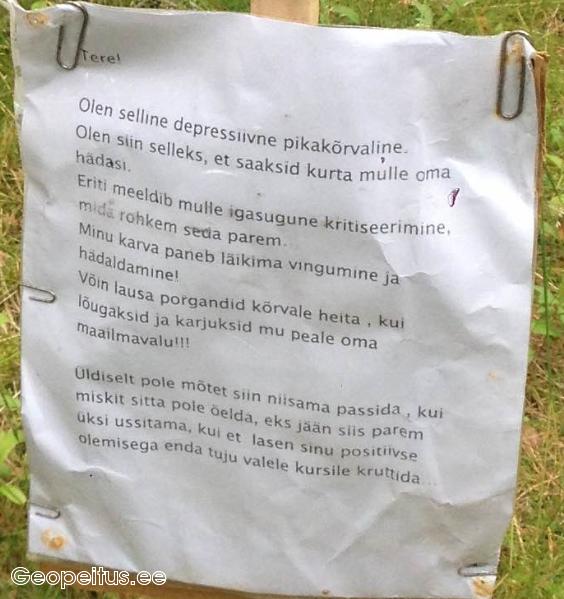 Tere!
Olen selline depressiivne pikakõrvaline.
Olen siin selleks, et saaksid kurta mulle oma
hädasi.
Eriti meeldib mulle igasugune kritiseerimine,
mida rohkem seda parem.
Minu karva paneb läikima vingumine ja
hädaldamine!
Võin lausa porgandid kõrvale heita , kui
lõugaksid ja karjuksid mu peale oma
maailmavalu!!!
Üldiselt pole mõtet siin niisama passida , kui
miskit sitta pole öelda, eks jään siis parem
üksi ussitama, kui et lasen sinu positiivse
olemisega enda tuju valele kursile kruttida...
Geopeitus.ee